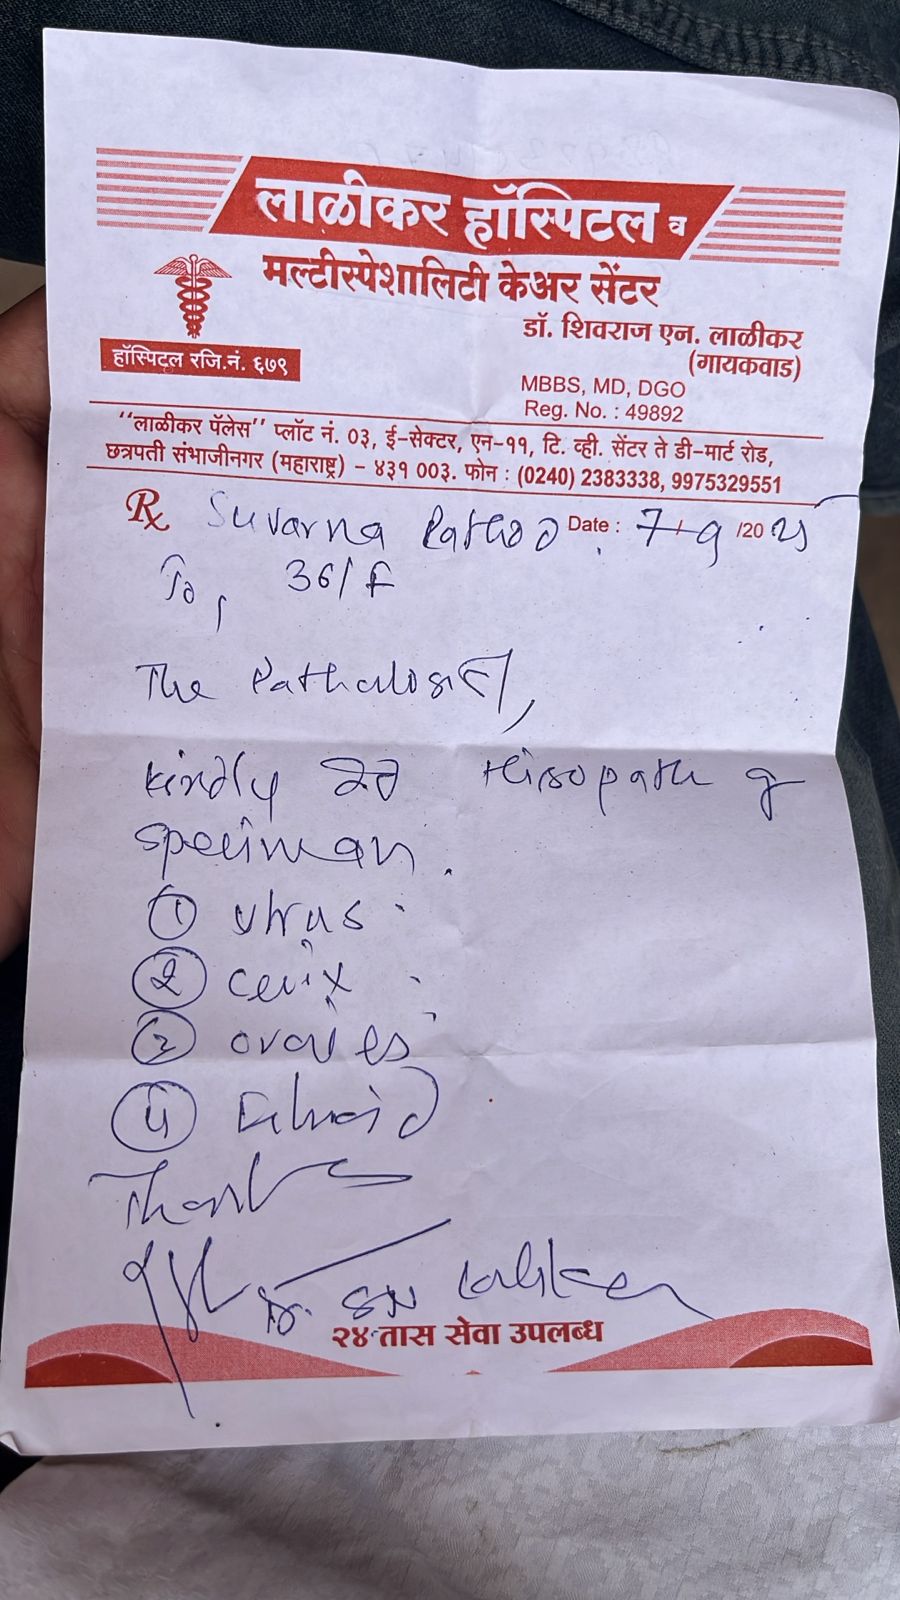 लाळीकर हॉस्पिटल व
मल्टीस्पेशालिटी केअर सेंटर
हॉस्पिटल रजि.नं. ६७९
डॉ. शिवराज एन. लाळीकर
(गायकवाड)
MBBS, MD, DGO
Reg. No. : 49892
"लाळीकर पॅलेस" प्लॉट नं. 03, ई-सेक्टर, एन-११, टि. व्ही. सेंटर ते डी-मार्ट रोड,
छत्रपती संभाजीनगर (महाराष्ट्र) - ४३१ 003. फोन : (0240) 2383338, 9975329551
Rx Suvarna Rathod Date : 7/9/2025
To, 36/F
The Pathologist,
Kindly do Hisopath of
speciman.
① utrus
② cervix
③ ovaries
④ Fibroid
Thanks
Dr. SN Lalikar
२४ तास सेवा उपलब्ध